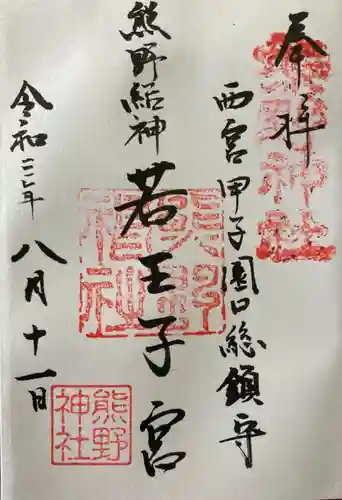 奉拝
西宮甲子園口総鎮守
熊野結神
若王子宮
令和三年
八月十一日
熊野
神社